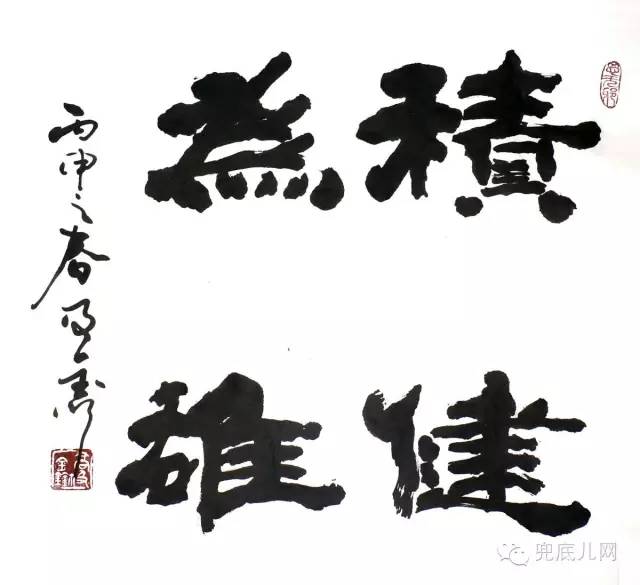 積健
為雄
丙申之春
兜底儿网